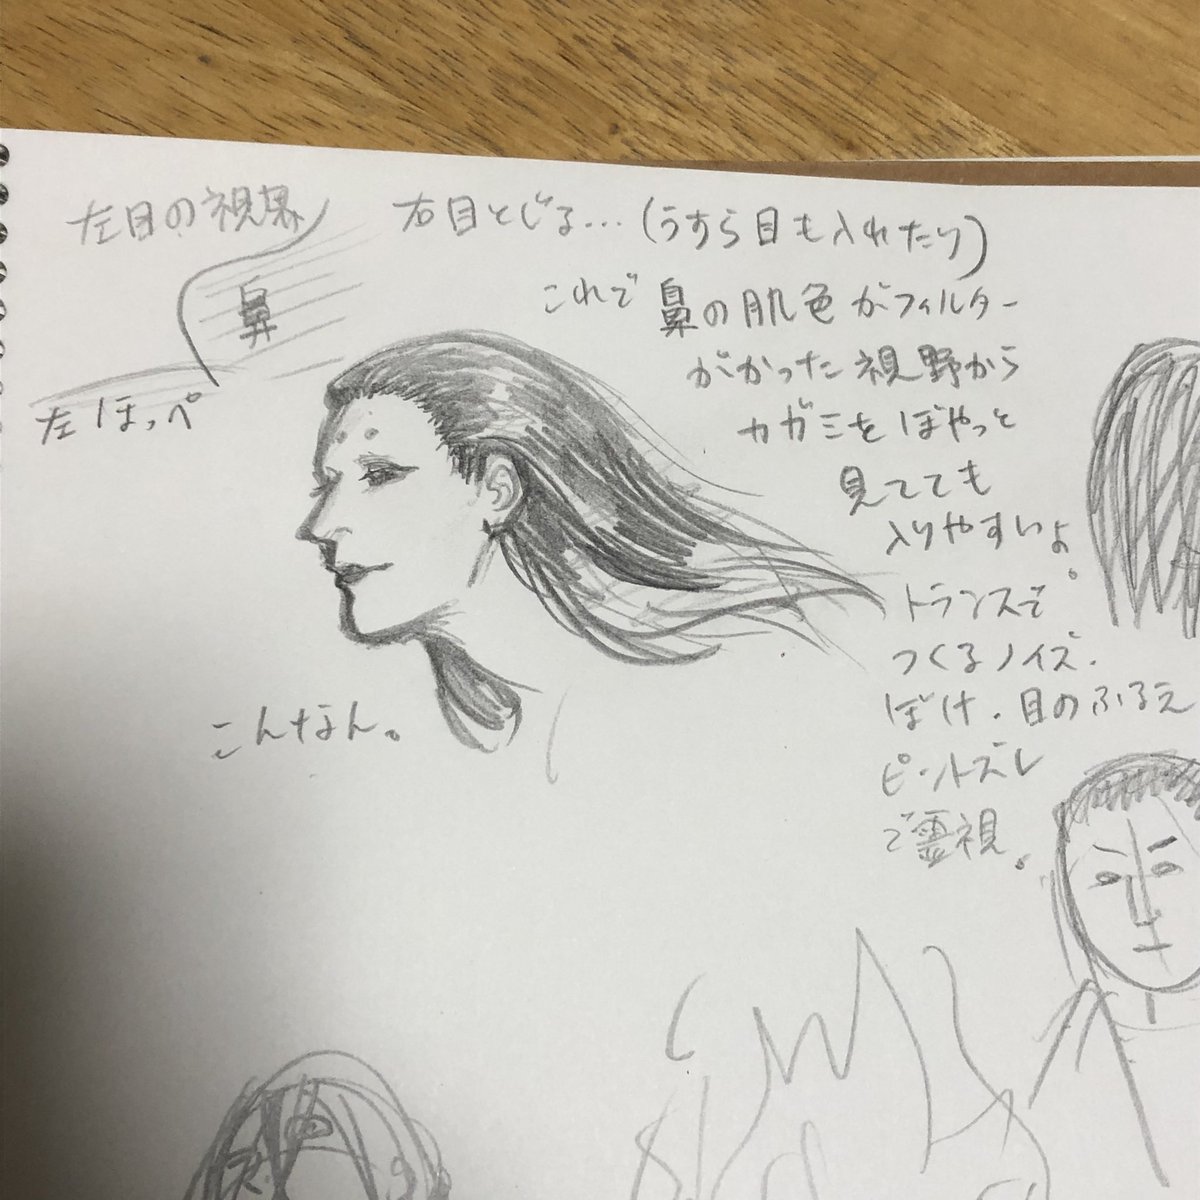 左目の視界
鼻
左ほっぺ
右目とじる…(うすら目も入れたり)
これで鼻の肌色がフィルター
がかった視野から
カガミをぼやっと
見てても
入りやすいよ。
トランスで
つくるノイズ.
ぼけ.目のふるえ
ピントズレ
で霊視。
こんなん。